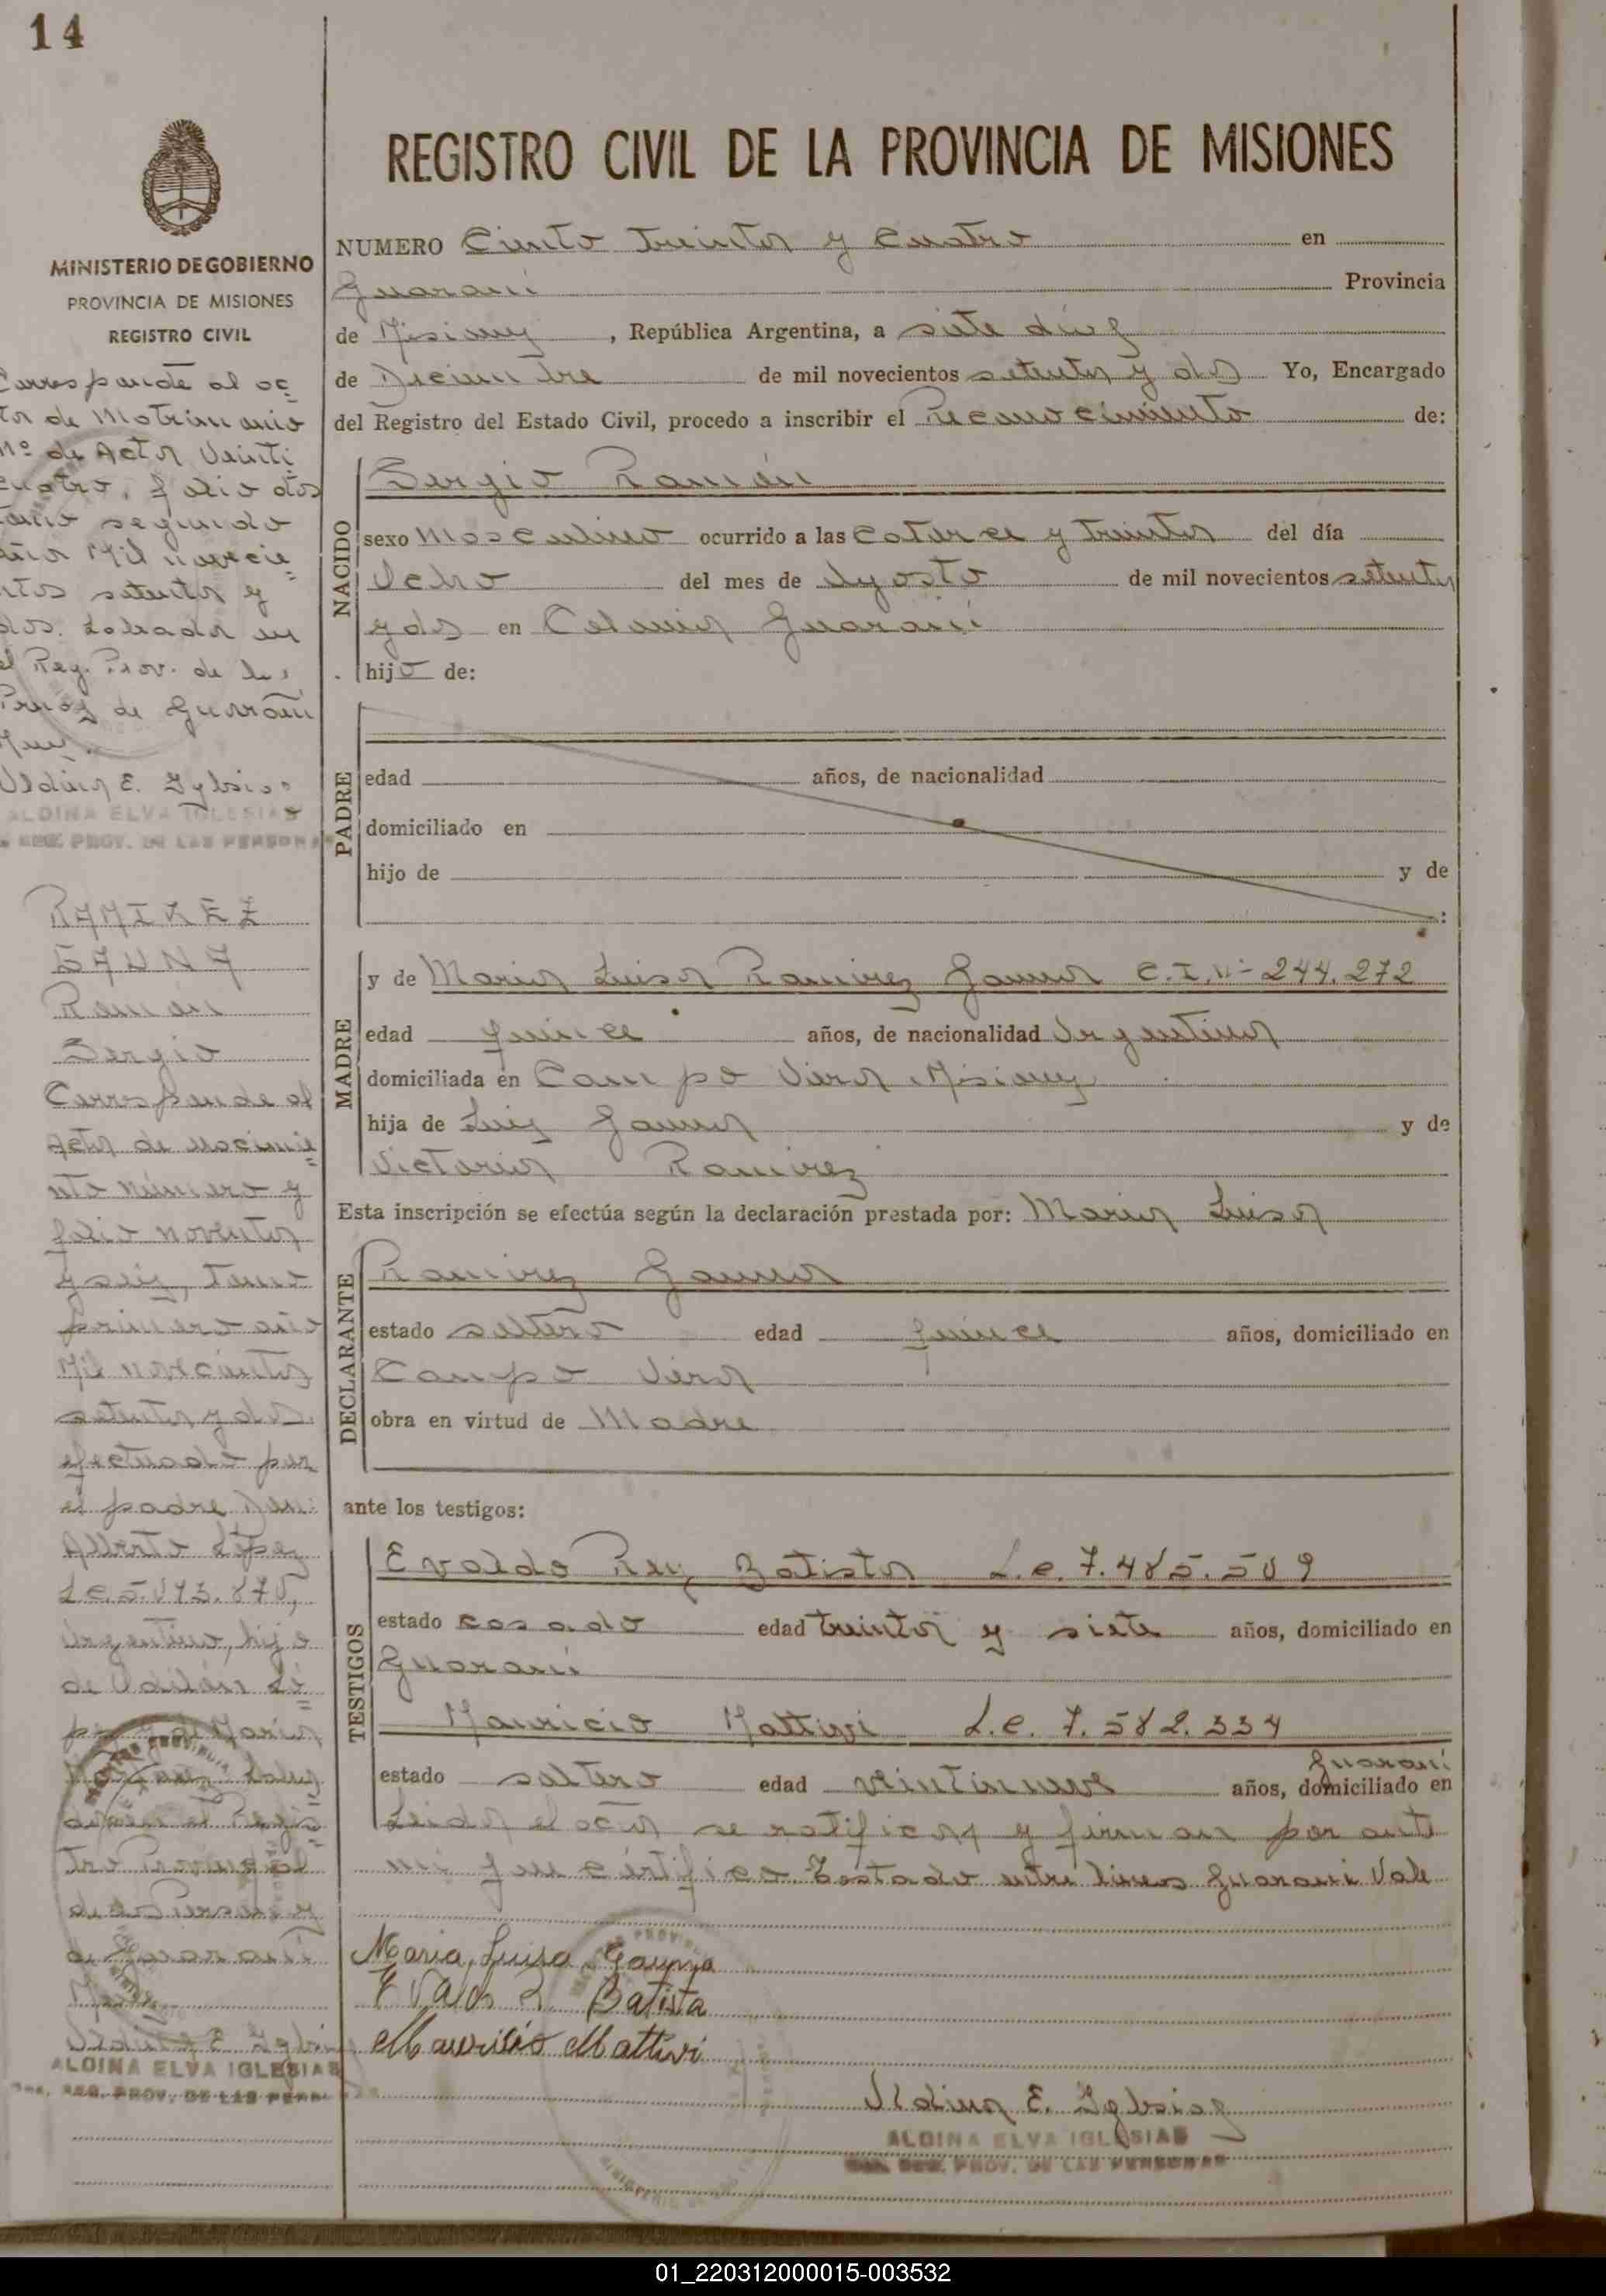 14
MINISTERIO DE GOBIERNO
PROVINCIA DE MISIONES
REGISTRO CIVIL
Corresponde al ac=
ta de Matrimonio
Nº de Acta Veinti
cuatro, folio dos
tomo segundo
año Mil novecie=
ntos setenta y
dos. Labrada en
el Reg. Prov. de las
Pernas de Guaraní
Mnes.
Aldina E. Iglesias
ALDINA ELVA IGLESIAS
REG. PROV. DE LAS PERSONAS
RAMIREZ
GAUNA
Ramón
Sergio
Corresponde al
Acta de nacimie=
nto número y
folio noventa
y seis, Tomo
primero año
Mil novecientos
setenta y dos.
efectuado por
el padre
Alberto López
L.e. 5.
argentino, hijo
de López
y de María
Registro Provincial
de las Personas
de Guaraní
ALDINA ELVA IGLESIAS
REG. PROV. DE LAS PERSONAS
REGISTRO CIVIL DE LA PROVINCIA DE MISIONES
NUMERO Ciento treinta y cuatro en
Guaraní Provincia
de Misiones, República Argentina, a siete días
de Diciembre de mil novecientos setenta y dos Yo, Encargado
del Registro del Estado Civil, procedo a inscribir el Reconocimiento de:
NACIDO
Sergio Ramón
sexo Masculino ocurrido a las catorce y treinta del día
Ocho del mes de Agosto de mil novecientos setenta
y dos en Colonia Guaraní
hijo de:
PADRE
edad años, de nacionalidad
domiciliado en
hijo de y de
MADRE
y de Maria Luisa Ramirez Gauna C.I.Nº 244.272
edad quince años, de nacionalidad Argentina
domiciliada en Campo Viera Misiones
hija de Luis Gauna y de
Victoria Ramirez
Esta inscripción se efectúa según la declaración prestada por: Maria Luisa
DECLARANTE
Ramirez Gauna
estado soltera edad quince años, domiciliado en
Campo Viera
obra en virtud de Madre
ante los testigos:
TESTIGOS
Evaldo Rey Batista L.e. 7.485.509
estado casado edad treinta y siete años, domiciliado en
Guaraní
Mauricio Mattivi L.e. 7.582.334
Guaraní
estado soltero edad veintinueve años, domiciliado en
Leida el acta se ratifican y firman por ante
mi que certifico. Testado entre lineas Guaraní Vale
Maria Luisa Gauna
Evaldo R. Batista
Mauricio Mattivi
Aldina E. Iglesias
ALDINA ELVA IGLESIAS
REG. PROV. DE LAS PERSONAS
01_220312000015-003532